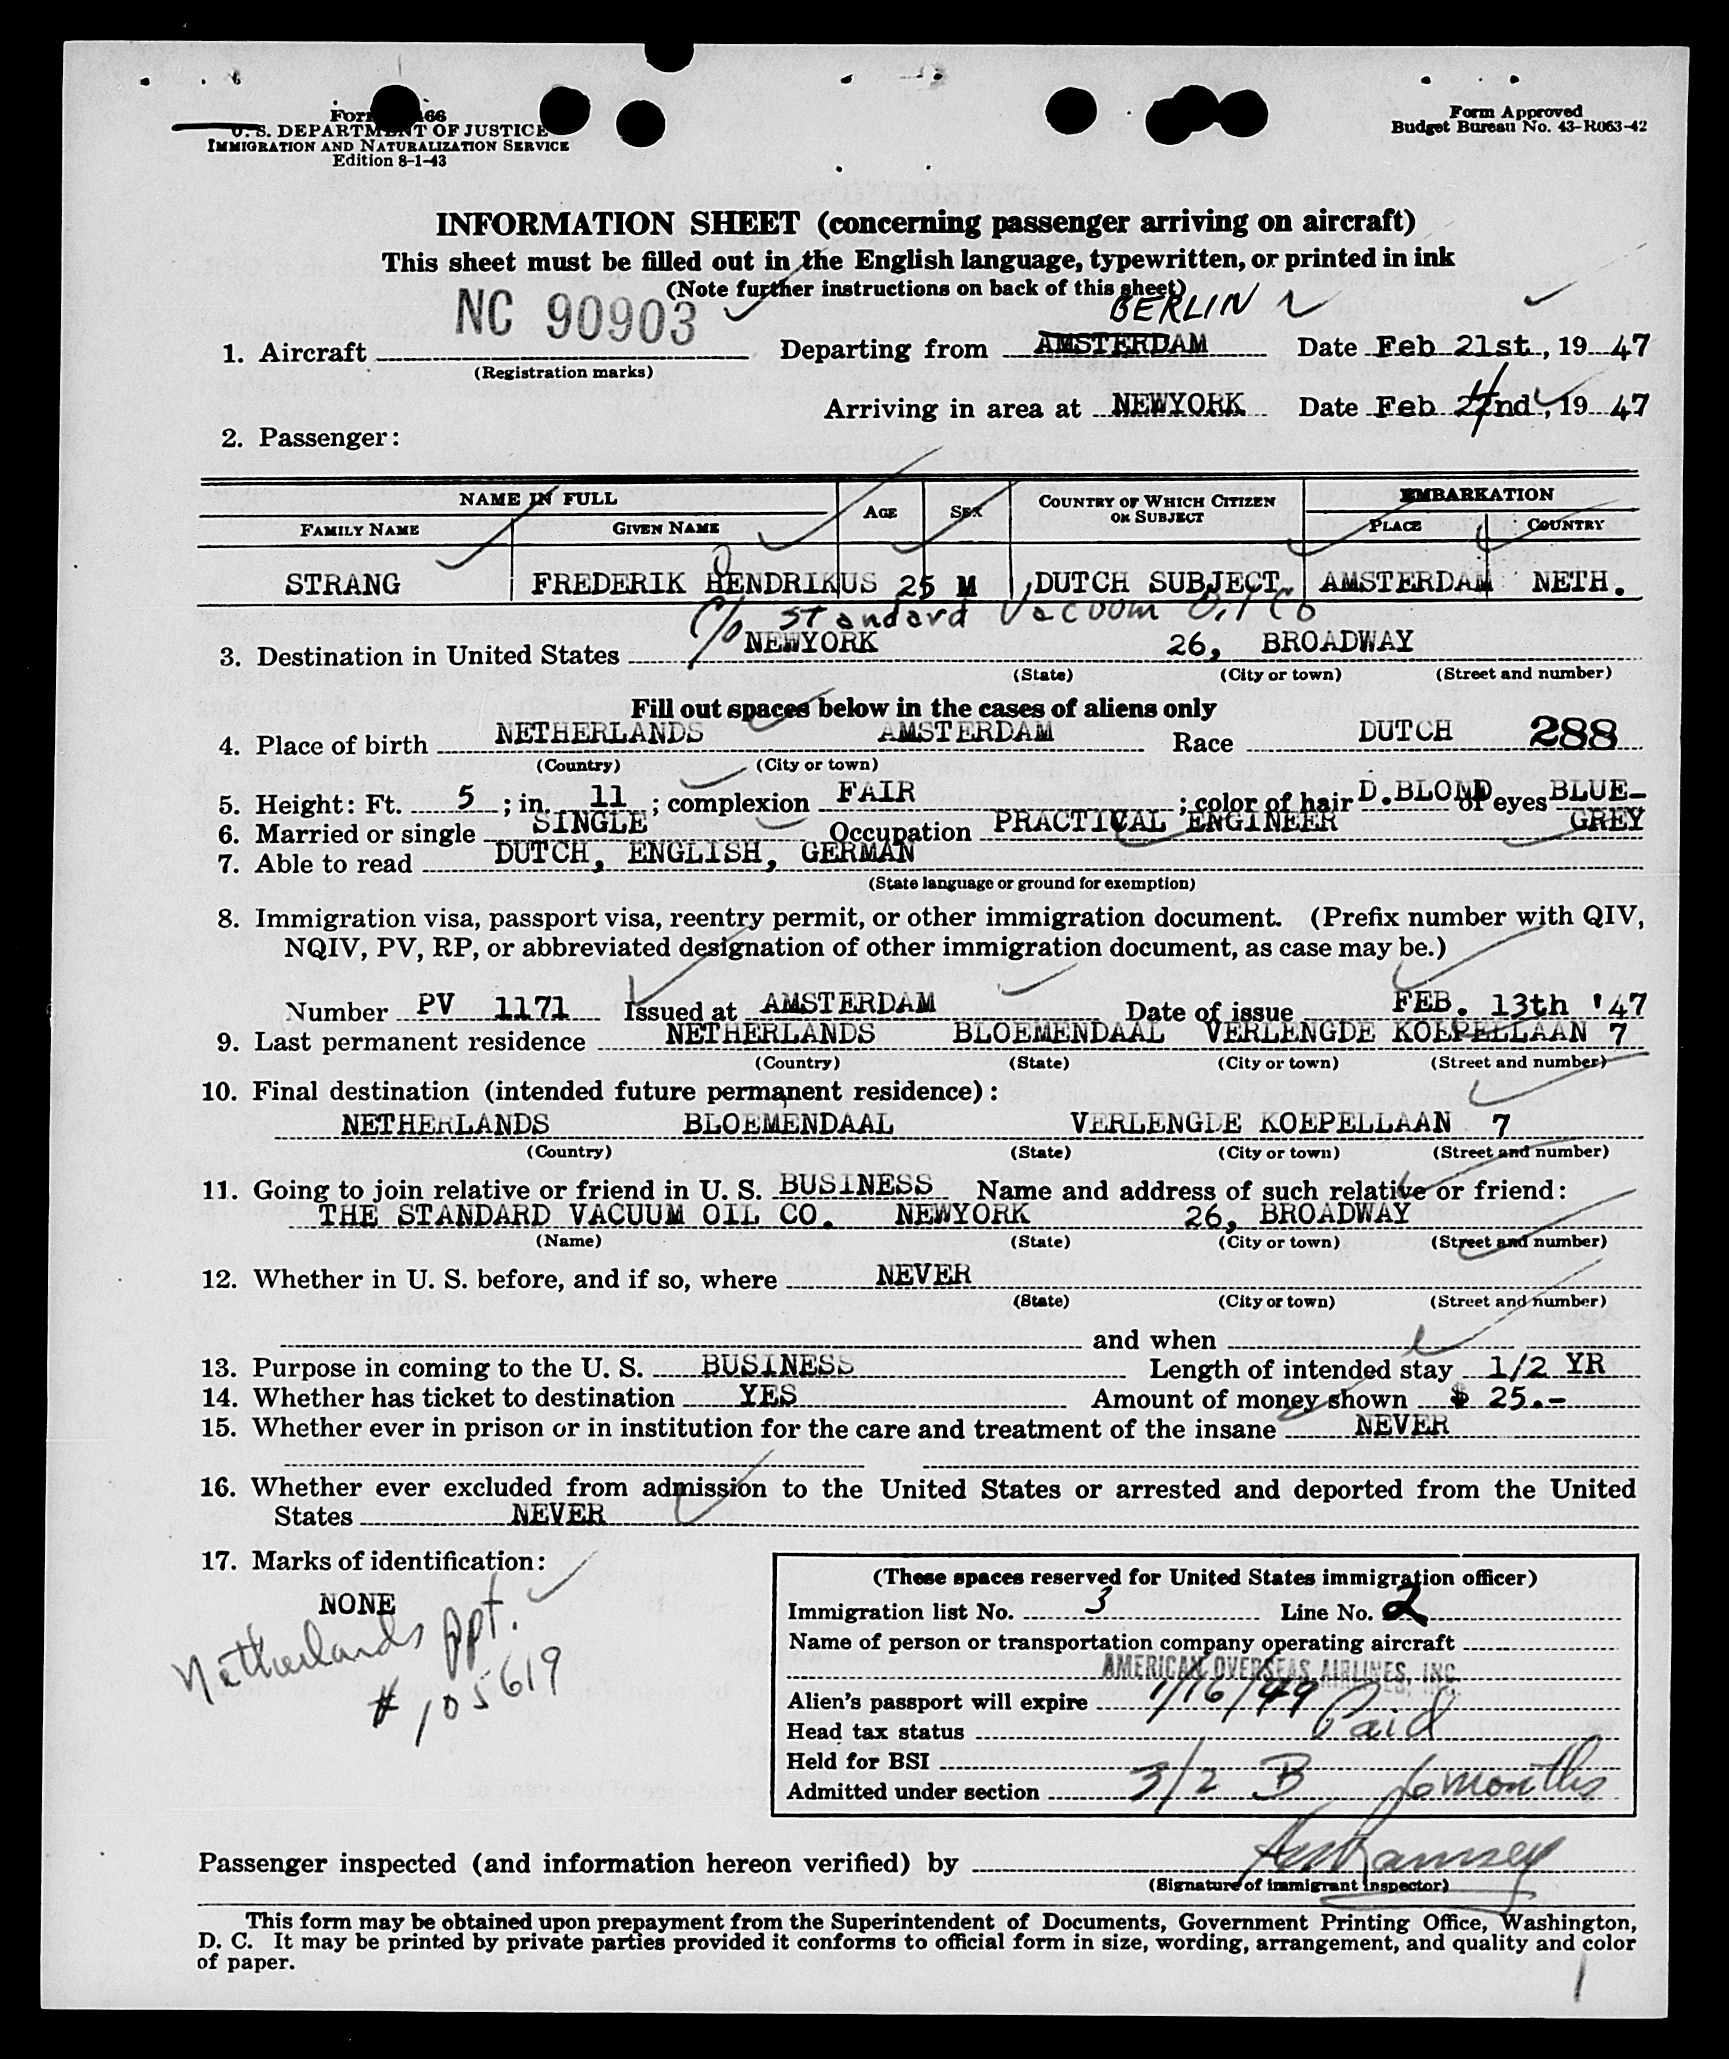 Form 66
U. S. DEPARTMENT OF JUSTICE
IMMIGRATION AND NATURALIZATION SERVICE
Edition 8-1-43
Form Approved
Budget Bureau No. 43-R063-42
INFORMATION SHEET (concerning passenger arriving on aircraft)
This sheet must be filled out in the English language, typewritten, or printed in ink
(Note further instructions on back of this sheet)
BERLIN
1. Aircraft NC 90903 Departing from AMSTERDAM Date Feb 21st, 1947
(Registration marks)
Arriving in area at NEWYORK Date Feb 22nd, 1947
4
2. Passenger:
NAME IN FULL AGE SEX COUNTRY OF WHICH CITIZEN OR SUBJECT EMBARKATION
FAMILY NAME GIVEN NAME PLACE COUNTRY
STRANG FREDERIK HENDRIKUS 25 M DUTCH SUBJECT AMSTERDAM NETH.
c/o Standard Vacuum Oil Co
3. Destination in United States NEWYORK 26, BROADWAY
(State) (City or town) (Street and number)
Fill out spaces below in the cases of aliens only
4. Place of birth NETHERLANDS AMSTERDAM Race DUTCH 288
(Country) (City or town)
5. Height: Ft. 5 ; in. 11 ; complexion FAIR ; color of hair D.BLOND of eyes BLUE-
6. Married or single SINGLE Occupation PRACTICAL ENGINEER GREY
7. Able to read DUTCH, ENGLISH, GERMAN
(State language or ground for exemption)
8. Immigration visa, passport visa, reentry permit, or other immigration document. (Prefix number with QIV,
NQIV, PV, RP, or abbreviated designation of other immigration document, as case may be.)
Number PV 1171 Issued at AMSTERDAM Date of issue FEB. 13th '47
9. Last permanent residence NETHERLANDS BLOEMENDAAL VERLENGDE KOEPELLAAN 7
(Country) (State) (City or town) (Street and number)
10. Final destination (intended future permanent residence):
NETHERLANDS BLOEMENDAAL VERLENGDE KOEPELLAAN 7
(Country) (State) (City or town) (Street and number)
11. Going to join relative or friend in U. S. BUSINESS Name and address of such relative or friend:
THE STANDARD VACUUM OIL CO. NEWYORK 26, BROADWAY
(Name) (State) (City or town) (Street and number)
12. Whether in U. S. before, and if so, where NEVER
(State) (City or town) (Street and number)
and when
13. Purpose in coming to the U. S. BUSINESS Length of intended stay 1/2 YR
14. Whether has ticket to destination YES Amount of money shown $ 25.-
15. Whether ever in prison or in institution for the care and treatment of the insane NEVER
16. Whether ever excluded from admission to the United States or arrested and deported from the United
States NEVER
17. Marks of identification:
NONE
Netherlands ppt.
# 105619
(These spaces reserved for United States immigration officer)
Immigration list No. 3 Line No. 2
Name of person or transportation company operating aircraft
AMERICAN OVERSEAS AIRLINES, INC.
Alien's passport will expire 1/16/49
Head tax status Paid
Held for BSI
Admitted under section 3/2 B 6 months
Passenger inspected (and information hereon verified) by
(Signature of immigrant inspector)
This form may be obtained upon prepayment from the Superintendent of Documents, Government Printing Office, Washington,
D. C. It may be printed by private parties provided it conforms to official form in size, wording, arrangement, and quality and color
of paper.